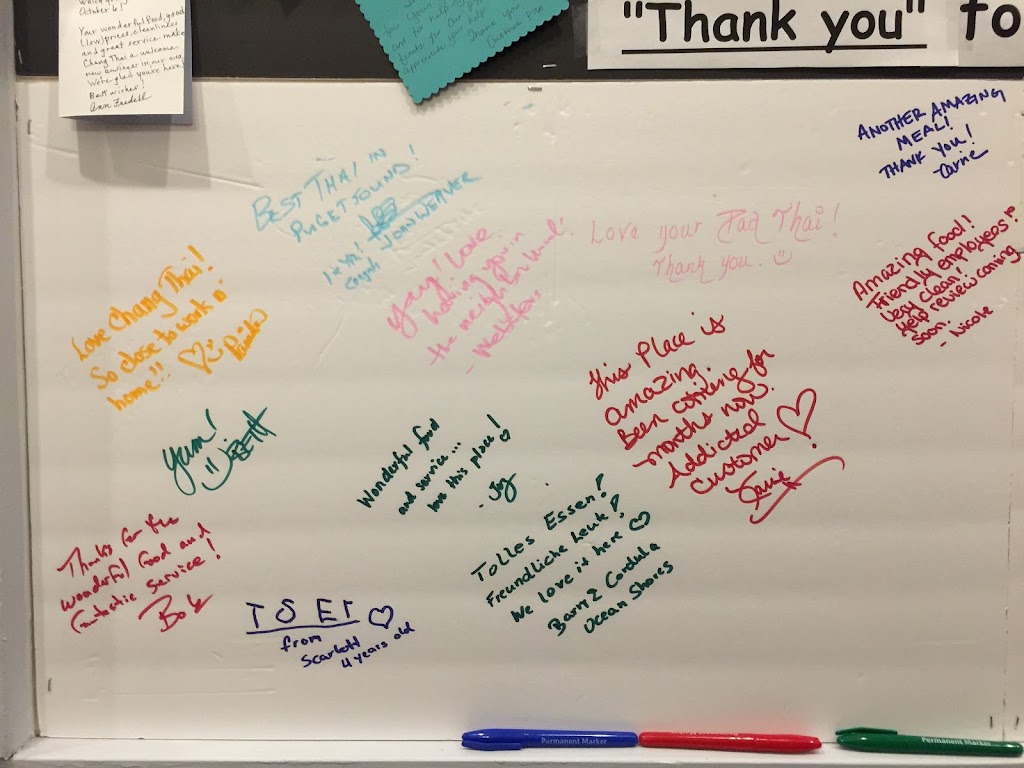 October 6!
Your wonderful food, good
(low) prices, cleanliness
and great service make
Chang Thai a welcome
new business in our area
We're glad you're here!
Best wishes!
Ann
"Thank you" to
ANOTHER AMAZING
MEAL!
THANK YOU!
- Carrie
BEST THAI IN
PUGET SOUND!
JOHN WEAVER
Love your Pad Thai!
Thank you.
Amazing food!
Friendly employees!
Very clean!
Yelp review coming
soon.
- Nicole
Yay! Love
having you in
the neighborhood!
Love Chang Thai!
So close to work n
home!!
This Place is
amazing.
Been coming for
months now.
Addicted
Customer!
Yum!
BETH
Wonderful food
and service...
love this place!
- Joy
Tolles Essen!
Freundliche Leut!
We love it here
Barry & Cordula
Ocean Shores
Thanks for the
wonderful food and
fantastic service!
Bob
from
Scarlett
4 years old
Permanent Marker
Permanent Marker
Permanent Marker